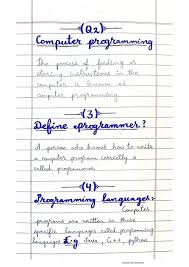 (Q.2)
Computer programming
The process of feeding or
storing instructions in the
computer is known as
computer programming.
(3)
Define programmer?
A person who knows how to write
a computer program correctly is
called programmer.
(4)
Programming languages:-
Computer
programs are written in these
specific languages called programming
languages E.g Java, C++, python